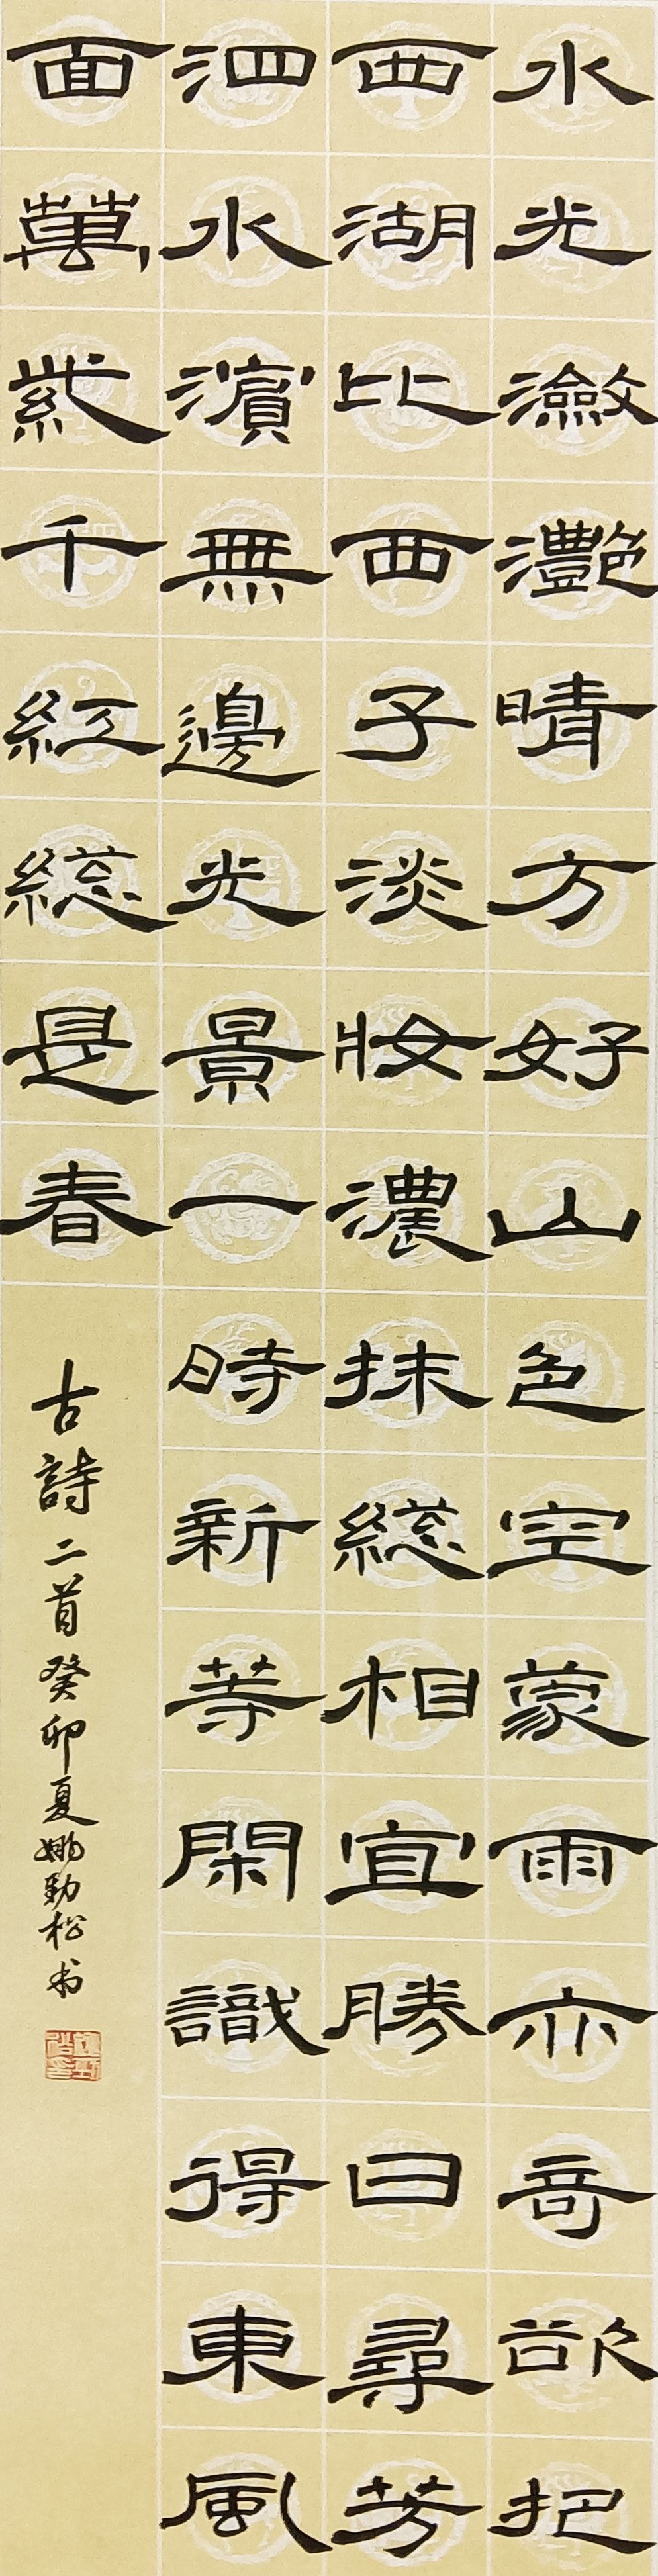 水光瀲灧晴方好山色空蒙雨亦奇欲把
西湖比西子淡妝濃抹総相宜勝日尋芳
泗水濱無邊光景一時新等閑識得東風
面萬紫千紅総是春
古詩二首癸卯夏姚勁松书